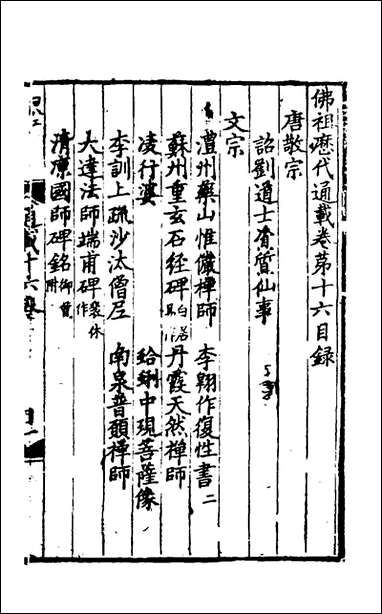 佛祖歷代通載卷第十六目録
唐敬宗
詔劉道士資質仙事
文宗
澧州藥山惟儼禪師 李翱作復性書二
蘇州重玄石經碑白居易 丹霞天然禪師
凌行婆 蛤蜊中現菩薩像
李訓上疏沙汰僧尼 南泉普願禪師
大達法師端甫碑裴休作
清凉國師碑銘御賛附
通載十六卷